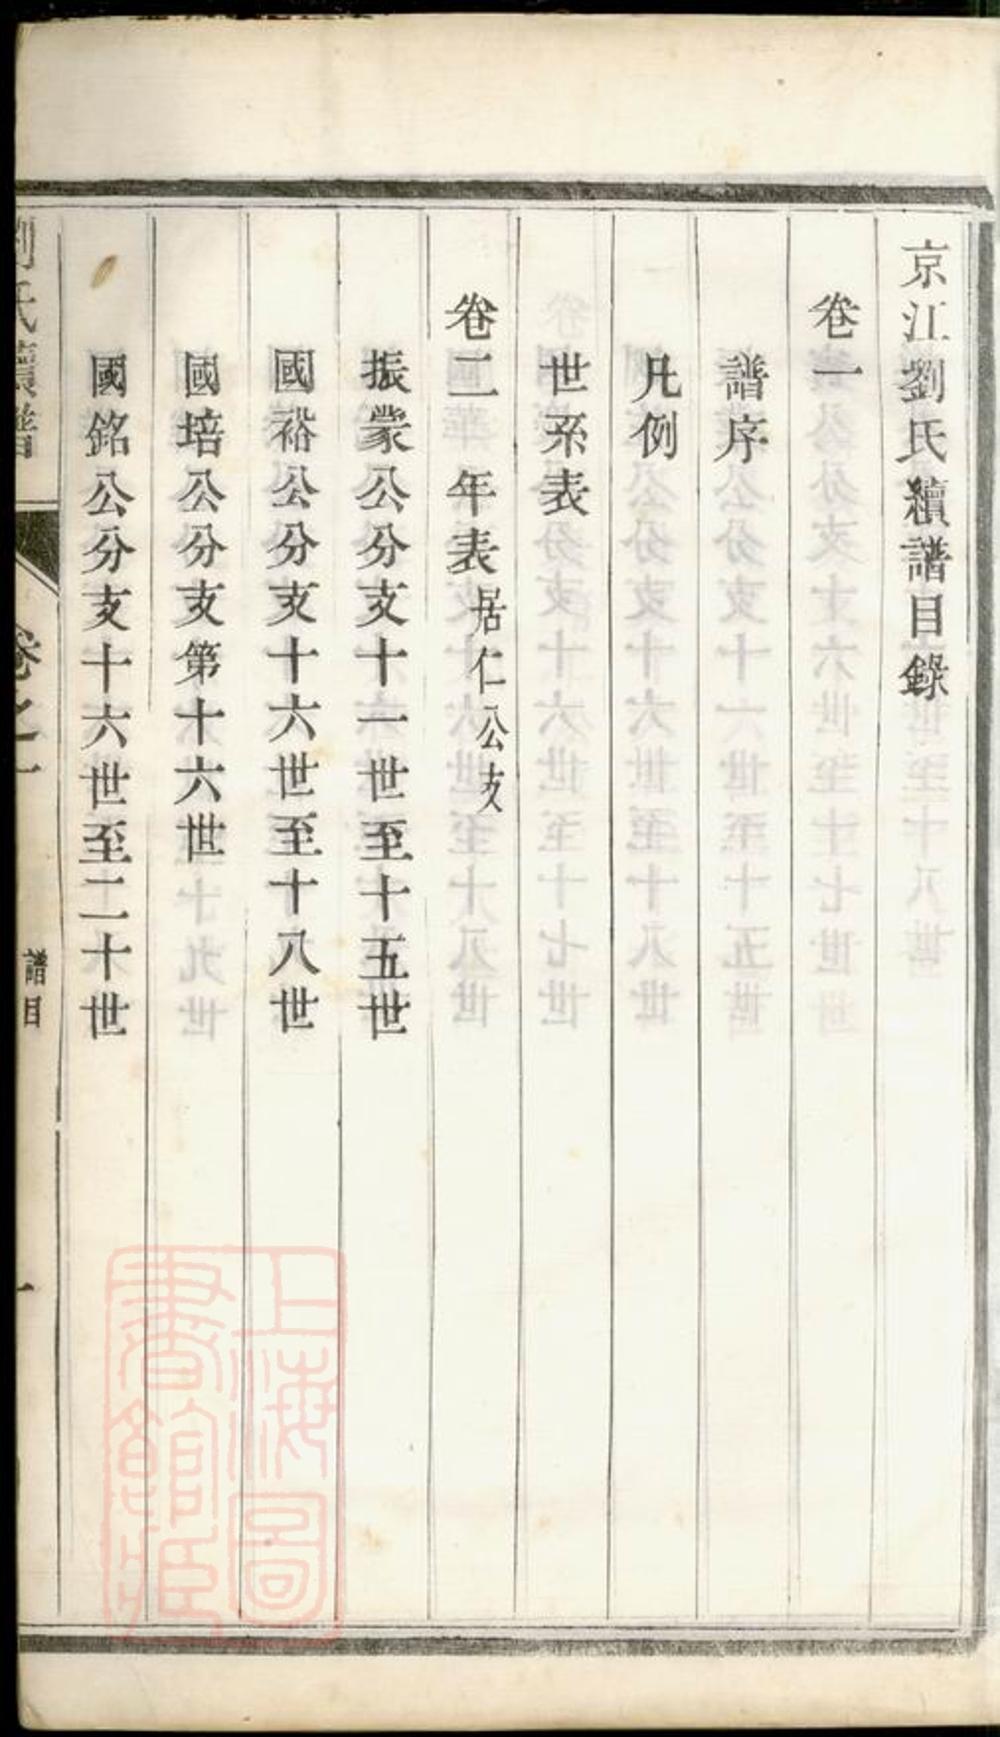 京江劉氏續譜目錄
卷一
譜序
凡例
世系表
卷二 年表 居仁公支
振蒙公分支十一世至十五世
國裕公分支十六世至十八世
國培公分支第十六世
國銘公分支十六世至二十世
劉氏續譜 卷之一 譜目 一
上海圖書館藏